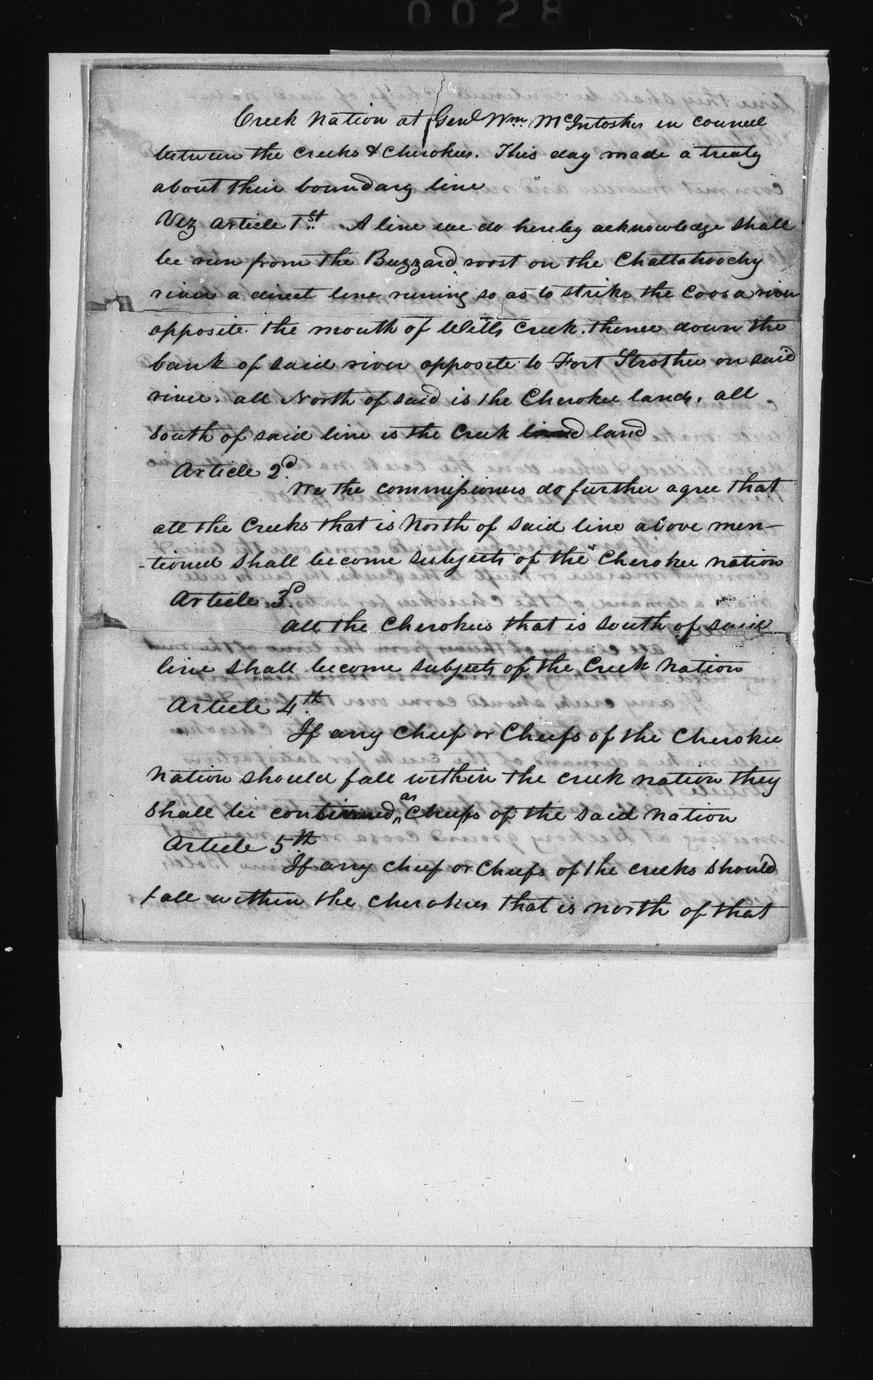 0028
Creek Nation at Genl Wm McIntoshes in council
between the Creeks & Cherokees. This day made a treaty
about their boundary line
Viz Article 1st. A line we do hereby acknowledge shall
be run from the Buzzard roost on the Chattahoochy
river a direct line runing so as to strike the Coosa river
opposite the mouth of Wills Creek. thence down the
bank of said river opposite to Fort Strother on said
river. all North of said is the Cherokee lands. all
South of said line is the Creek land
Article 2d.
We the commissioners do further agree that
all the Creeks that is North of said line above men-
-tioned shall become subjects of the Cherokee nation
Article 3d.
All the Cherokees that is south of said
line shall become subjects of the Creek Nation
Article 4th.
If any cheef or Cheefs of the Cherokee
Nation should fall within the creek nation they
shall be continued, as Cheefs of the said Nation
Article 5th
If any cheef or Cheefs of the creeks should
fall within the Cherokees that is north of that